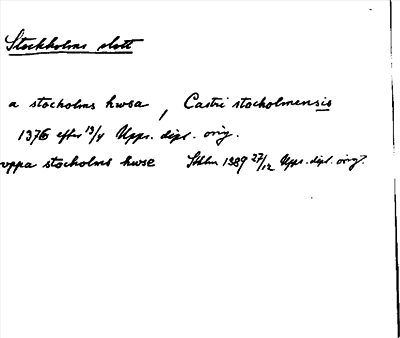 Stockholms slott
a stocholms hwsa, Castri stocholmensis
1376 efter 13/4 Upps. dipl. orig.
vppa stocholms hwse Sthlm 1389 27/12 Upps. dipl. orig.